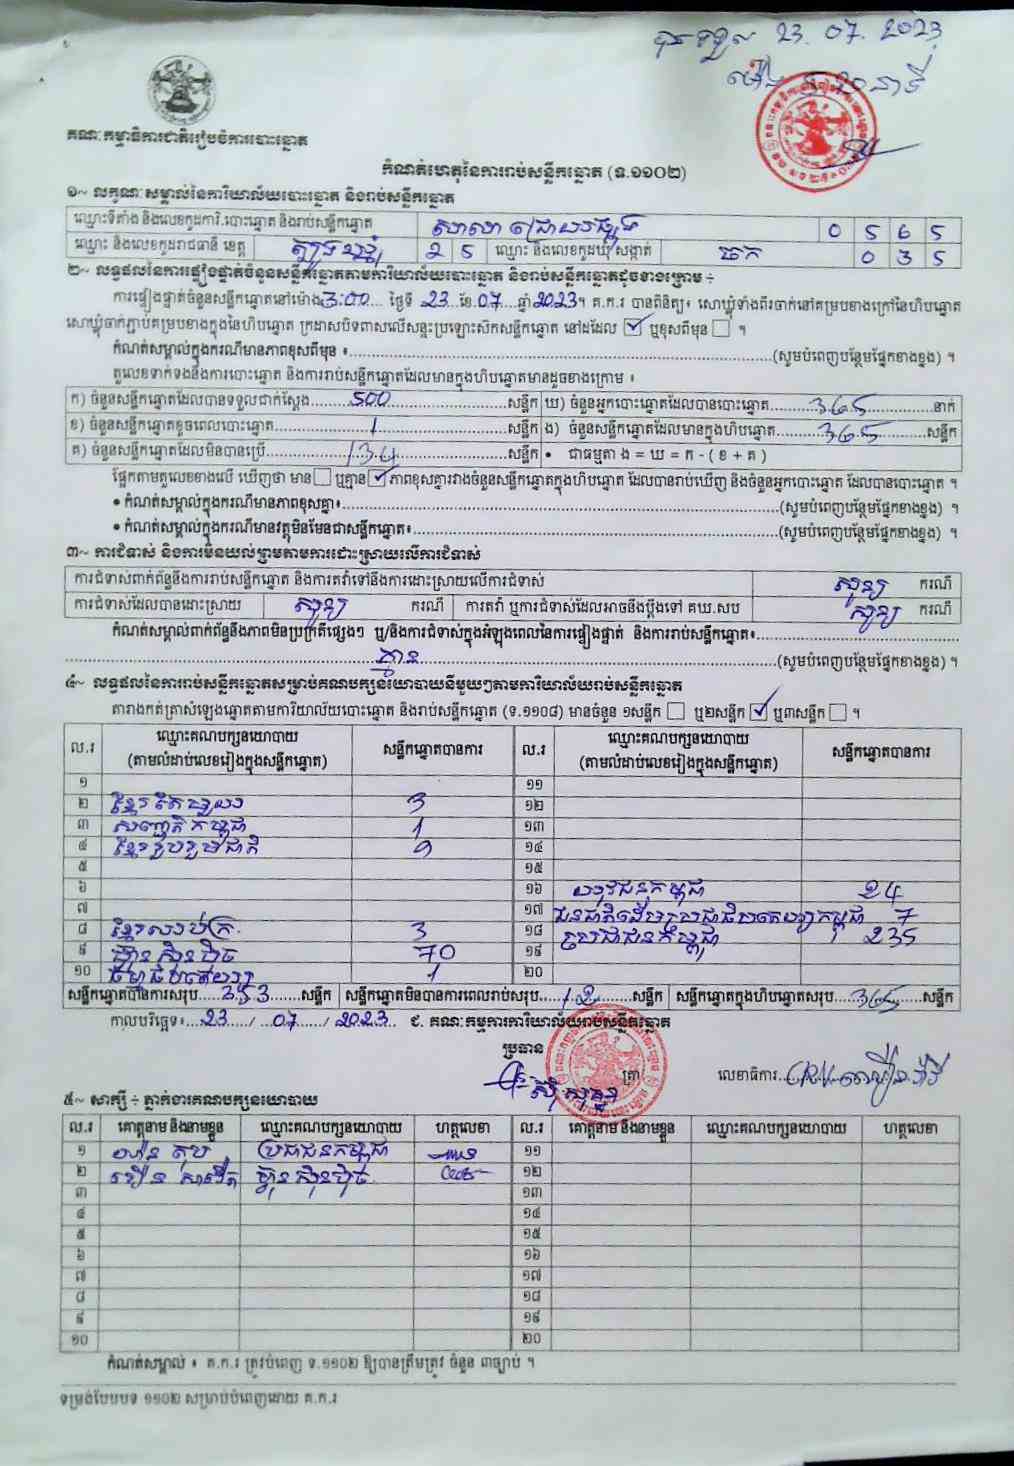 បានទទួល 23. 07. 2023
ម៉ោង នាទី
គណៈកម្មាធិការជាតិរៀបចំការបោះឆ្នោត
កំណត់ហេតុនៃការរាប់សន្លឹកឆ្នោត (ទ.១១០២)
១~ លក្ខណៈសម្គាល់នៃការិយាល័យបោះឆ្នោត និងរាប់សន្លឹកឆ្នោត
ឈ្មោះទីតាំង និងលេខកូដការិ.បោះឆ្នោត និងរាប់សន្លឹកឆ្នោត សាលា 0 5 6 5
ឈ្មោះ និងលេខកូដរាជធានី ខេត្ត ត្បូងឃ្មុំ 2 5 ឈ្មោះ និងលេខកូដឃុំ សង្កាត់ ចក 0 3 5
២~ លទ្ធផលនៃការផ្ទៀងផ្ទាត់ចំនួនសន្លឹកឆ្នោតតាមការិយាល័យបោះឆ្នោត និងរាប់សន្លឹកឆ្នោតដូចខាងក្រោម ÷
ការផ្ទៀងផ្ទាត់ចំនួនសន្លឹកឆ្នោតនៅម៉ោង 3:00 ថ្ងៃទី 23 ខែ 07 ឆ្នាំ 2023 ។ គ.ក.រ បានពិនិត្យ៖ សោឃ្លុំទាំងពីរចាក់នៅគម្របខាងក្រៅនៃហិបឆ្នោត
សោឃ្លុំចាក់ភ្ជាប់គម្របខាងក្នុងនៃហិបឆ្នោត ក្រដាសបិទពាសលើសន្ទះប្រឡោះសិកសន្លឹកឆ្នោត នៅដដែល ☑ ឬខុសពីមុន ☐ ។
កំណត់សម្គាល់ក្នុងករណីមានភាពខុសពីមុន ៖ (សូមបំពេញបន្ថែមផ្នែកខាងខ្នង) ។
តួលេខទាក់ទងនឹងការបោះឆ្នោត និងការរាប់សន្លឹកឆ្នោតដែលមានក្នុងហិបឆ្នោតមានដូចខាងក្រោម ៖
ក) ចំនួនសន្លឹកឆ្នោតដែលបានទទួលជាក់ស្តែង 500 សន្លឹក ឃ) ចំនួនអ្នកបោះឆ្នោតដែលបានបោះឆ្នោត 365 នាក់
ខ) ចំនួនសន្លឹកឆ្នោតខូចពេលបោះឆ្នោត 1 សន្លឹក ង) ចំនួនសន្លឹកឆ្នោតដែលមានក្នុងហិបឆ្នោត 365 សន្លឹក
គ) ចំនួនសន្លឹកឆ្នោតដែលមិនបានប្រើ 134 សន្លឹក • ជាធម្មតា ង = ឃ = ក - ( ខ + គ )
ផ្អែកតាមតួលេខខាងលើ ឃើញថា មាន ☐ ឬគ្មាន ☑ ភាពខុសគ្នារវាងចំនួនសន្លឹកឆ្នោតក្នុងហិបឆ្នោត ដែលបានរាប់ឃើញ និងចំនួនអ្នកបោះឆ្នោត ដែលបានបោះឆ្នោត ។
• កំណត់សម្គាល់ក្នុងករណីមានភាពខុសគ្នា៖ (សូមបំពេញបន្ថែមផ្នែកខាងខ្នង) ។
• កំណត់សម្គាល់ក្នុងករណីមានវត្ថុមិនមែនជាសន្លឹកឆ្នោត៖ (សូមបំពេញបន្ថែមផ្នែកខាងខ្នង) ។
៣~ ការជំទាស់ និងការមិនយល់ព្រមតាមការដោះស្រាយលើការជំទាស់
ការជំទាស់ពាក់ព័ន្ធនឹងការរាប់សន្លឹកឆ្នោត និងការតវ៉ាទៅនឹងការដោះស្រាយលើការជំទាស់ សូន្យ ករណី
ការជំទាស់ដែលបានដោះស្រាយ សូន្យ ករណី ការតវ៉ា ឬការជំទាស់ដែលអាចនឹងប្តឹងទៅ គឃ.សប សូន្យ ករណី
កំណត់សម្គាល់ពាក់ព័ន្ធនឹងភាពមិនប្រក្រតីផ្សេងៗ ឬ/និងការជំទាស់ក្នុងអំឡុងពេលនៃការផ្ទៀងផ្ទាត់ និងការរាប់សន្លឹកឆ្នោត៖
គ្មាន (សូមបំពេញបន្ថែមផ្នែកខាងខ្នង) ។
៤~ លទ្ធផលនៃការរាប់សន្លឹកឆ្នោតសម្រាប់គណបក្សនយោបាយនីមួយៗតាមការិយាល័យរាប់សន្លឹកឆ្នោត
តារាងកត់ត្រាសំឡេងឆ្នោតតាមការិយាល័យបោះឆ្នោត និងរាប់សន្លឹកឆ្នោត (ទ.១១០៨) មានចំនួន ១សន្លឹក ☐ ឬ២សន្លឹក ☑ ឬ៣សន្លឹក ☐ ។
ល.រ ឈ្មោះគណបក្សនយោបាយ សន្លឹកឆ្នោតបានការ ល.រ ឈ្មោះគណបក្សនយោបាយ សន្លឹកឆ្នោតបានការ
(តាមលំដាប់លេខរៀងក្នុងសន្លឹកឆ្នោត) (តាមលំដាប់លេខរៀងក្នុងសន្លឹកឆ្នោត)
១ ១១
២ 3 ១២
៣ សញ្ជាតិកម្ពុជា 1 ១៣
៤ ខ្មែររួបរួមជាតិ 9 ១៤
៥ ១៥
៦ ១៦ យុវជនកម្ពុជា 24
៧ ១៧ ជនជាតិដើមប្រជាធិបតេយ្យកម្ពុជា 7
៨ 3 ១៨ ប្រជាជនកម្ពុជា 235
៩ ហ្វ៊ុនស៊ិនប៉ិច 70 ១៩
១០ 1 ២០
សន្លឹកឆ្នោតបានការសរុប 353 សន្លឹក សន្លឹកឆ្នោតមិនបានការពេលរាប់សរុប 12 សន្លឹក សន្លឹកឆ្នោតក្នុងហិបឆ្នោតសរុប 365 សន្លឹក
កាលបរិច្ឆេទ៖ 23 / 07 / 2023 ជ. គណៈកម្មការការិយាល័យរាប់សន្លឹកឆ្នោត
ប្រធាន
ត្រា លេខាធិការ
៥~ សាក្សី ÷ ភ្នាក់ងារគណបក្សនយោបាយ
ល.រ គោត្តនាម និងនាមខ្លួន ឈ្មោះគណបក្សនយោបាយ ហត្ថលេខា ល.រ គោត្តនាម និងនាមខ្លួន ឈ្មោះគណបក្សនយោបាយ ហត្ថលេខា
១ ប្រជាជនកម្ពុជា ១១
២ ហ្វ៊ុនស៊ិនប៉ិច ១២
៣ ១៣
៤ ១៤
៥ ១៥
៦ ១៦
៧ ១៧
៨ ១៨
៩ ១៩
១០ ២០
កំណត់សម្គាល់ ៖ គ.ក.រ ត្រូវបំពេញ ទ.១១០២ ឱ្យបានត្រឹមត្រូវ ចំនួន ៣ច្បាប់ ។
ទម្រង់បែបបទ ១១០២ សម្រាប់បំពេញដោយ គ.ក.រ